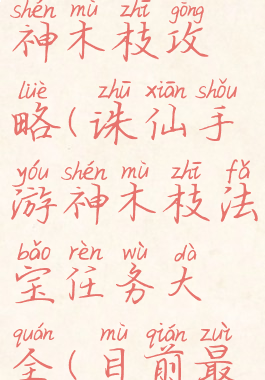 shén mù zhī gōng
神木枝攻
lüè zhū xiān shǒu
略(诛仙手
yóu shén mù zhī fǎ
游神木枝法
bǎo rèn wù dà
宝任务大
quán mù qián zuì
全(目前最